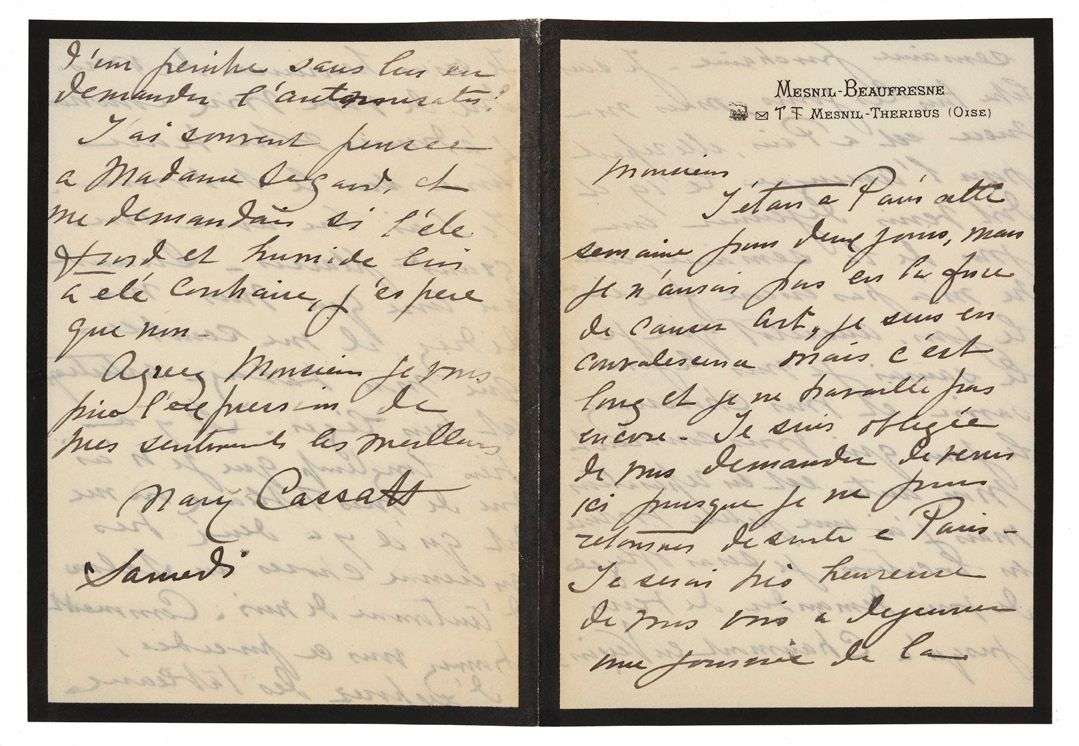 Mesnil-Beaufresne
Mesnil-Theribus (Oise)
Monsieur
J'étais à Paris cette
semaine pour deux jours, mais
je n'aurais pas eu la force
de causer art, je suis en
convalescence mais c'est
long et je ne travaille pas
encore - Je suis obligée
de vous demander de venir
ici puisque je ne puis
retourner de suite à Paris -
Je serai très heureuse
de vous voir a dejeuner
une journée de la
peindre sans lui en
demander l'autorisation?
J'ai souvent pensée
a Madame Segard, et
me demandais si l'été
froid et humide lui
a été contraire, j'espere
que non -
Agreez Monsieur je vous
prie l'expression de
mes sentiments les meilleurs
Mary Cassatt
Samedi